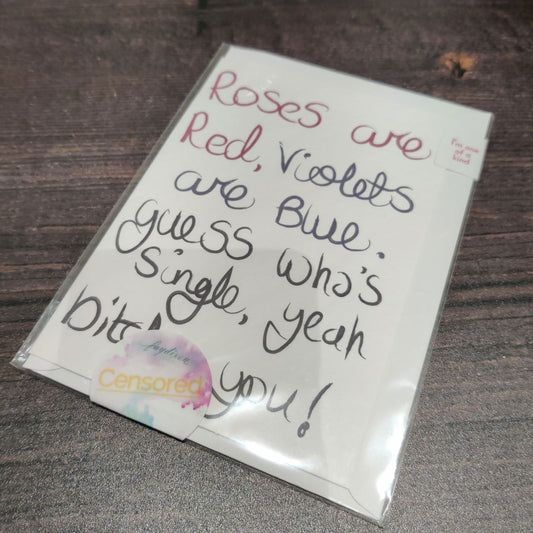 Roses are
Red, Violets
are Blue.
guess who's
single, yeah
you!
I'm one
of a
kind
Censored